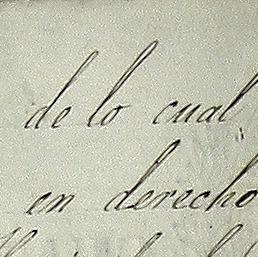 de lo cual,
en derecho